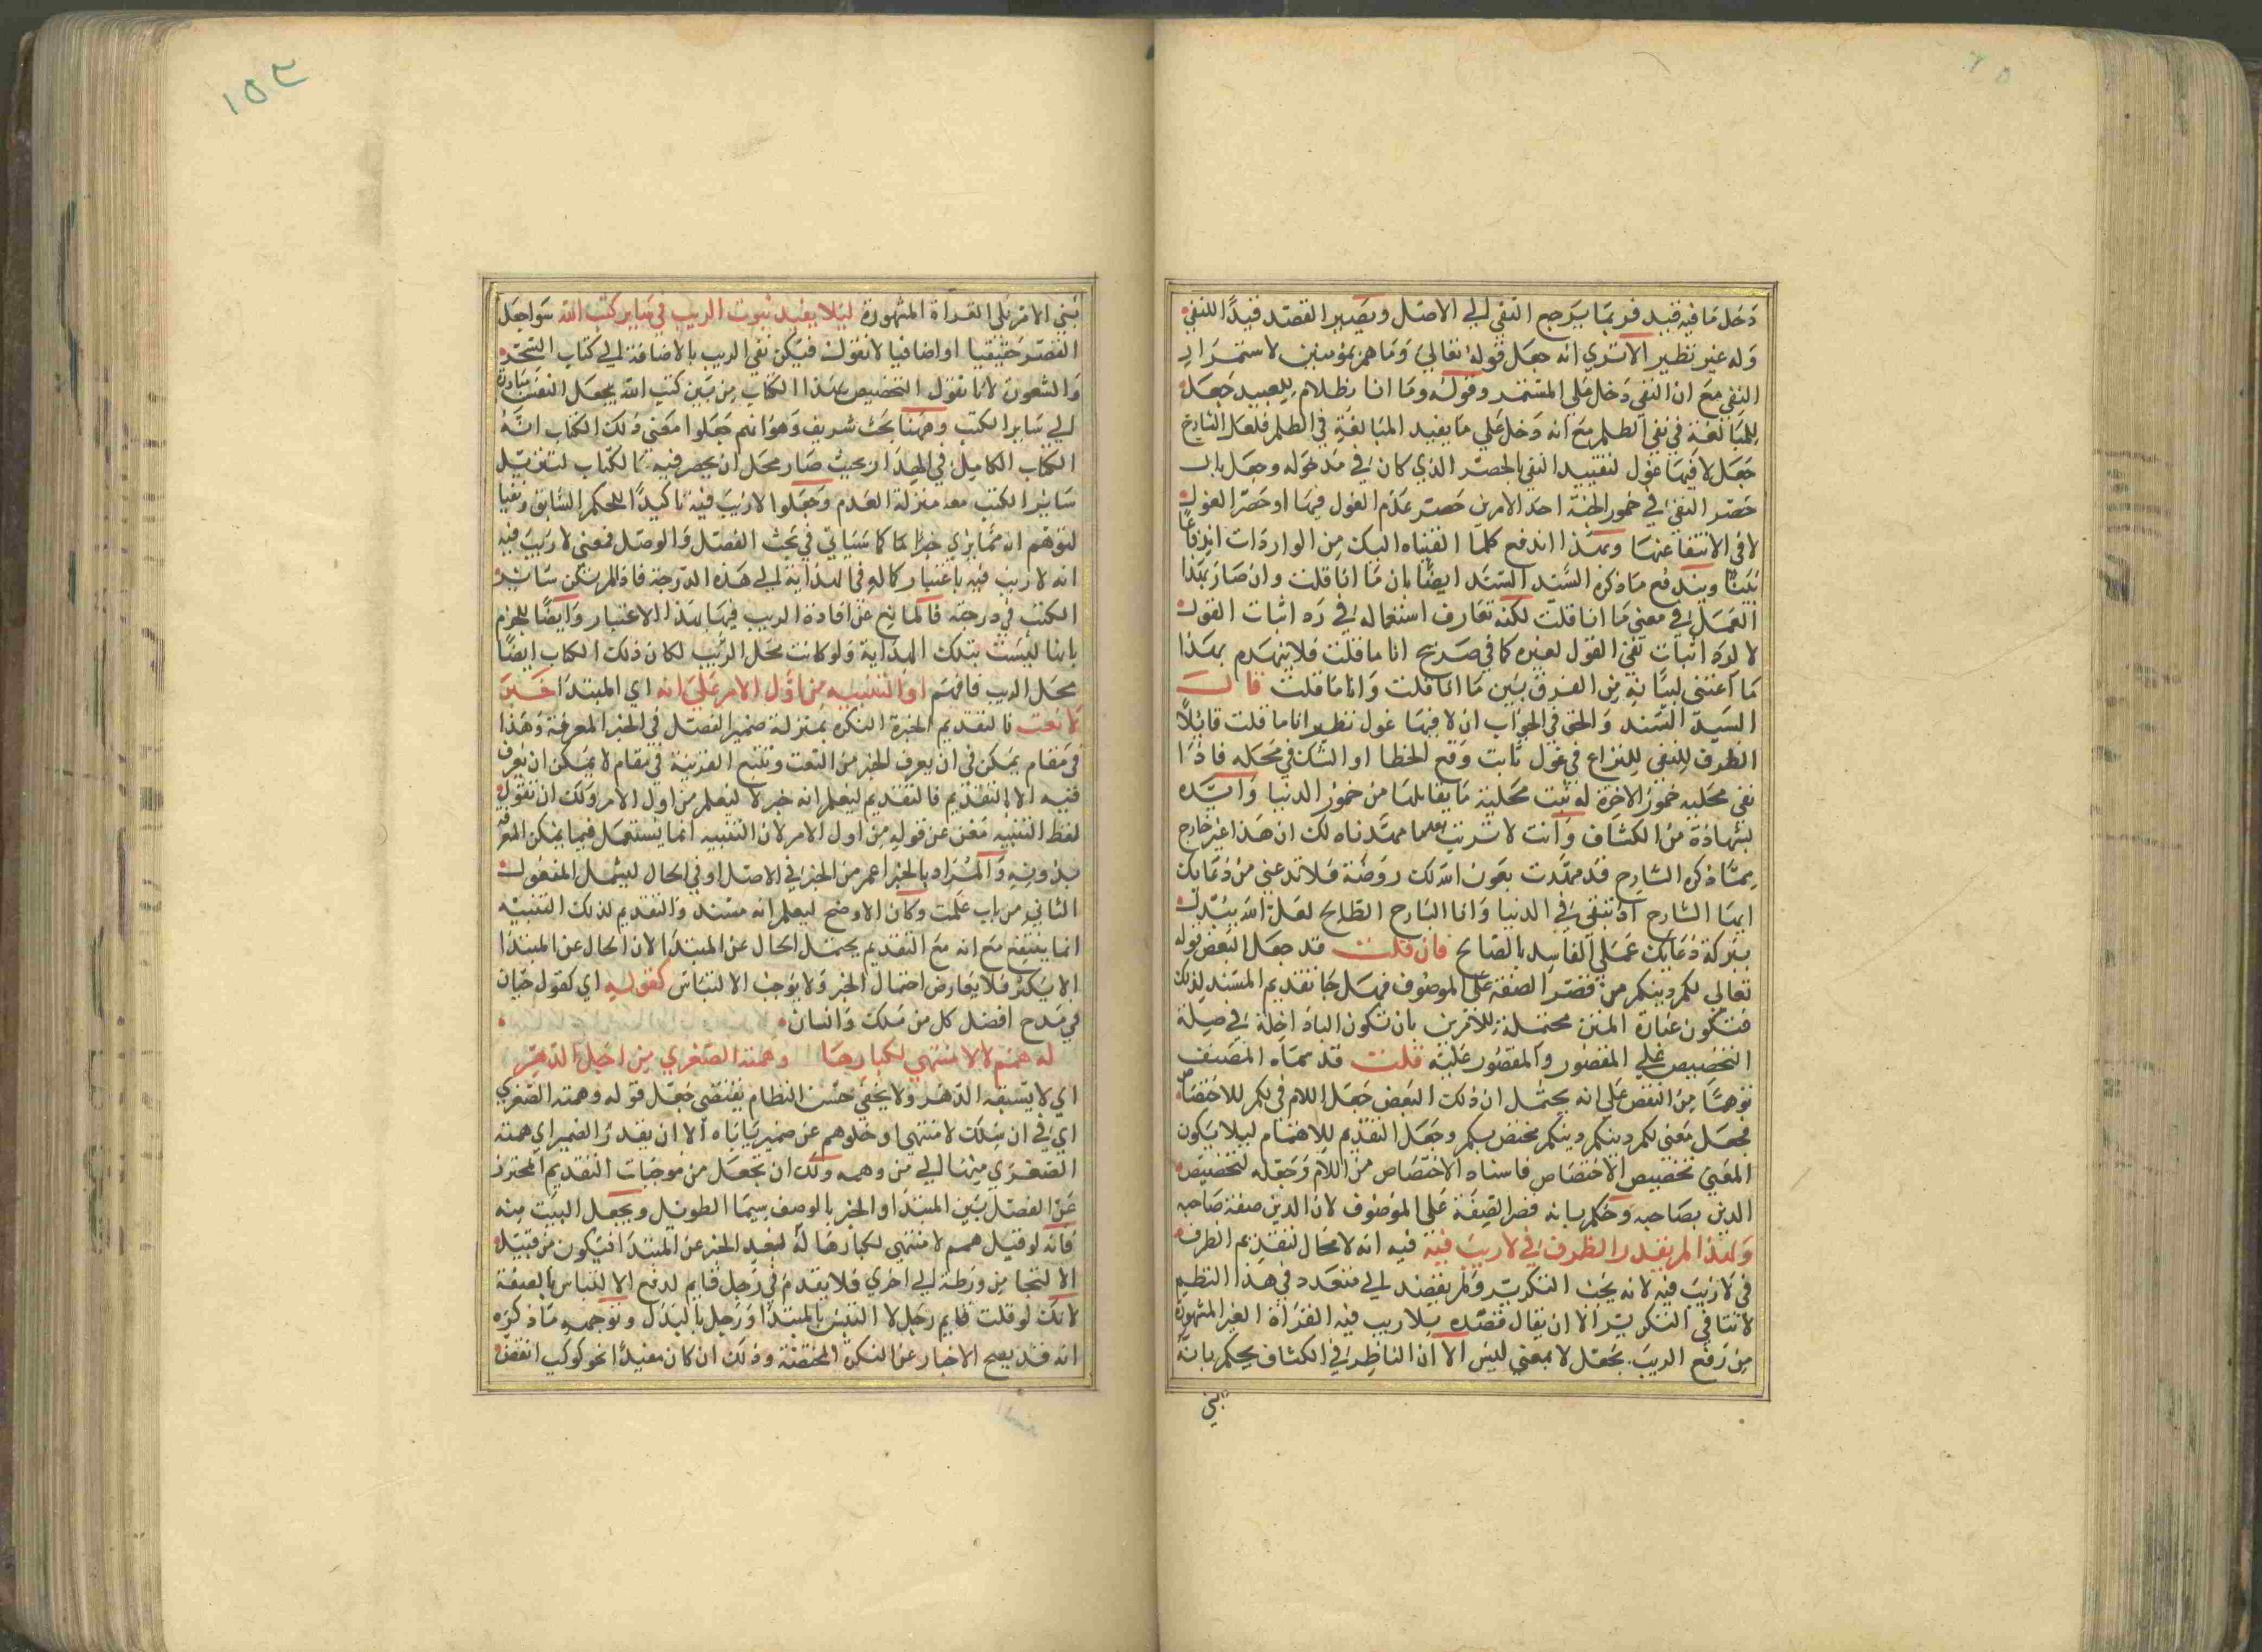 دخل ما فيه قيد فربما يرجع النفي الي الاصل ويصير القصد قيدا للنفي
وله غير نظير الا تري انه جعل قوله تعالي وما هم بمؤمنين لاستمرار
النفي مع ان النفي دخل علي المستمر وقوله وما انا بظلام للعبيد جعل
للمبالغة في نفي الظلم مع انه دخل علي ما يفيد المبالغة في الظلم فلعل الشارح
جعل لا فيها غول لتقييد النفي بالحصر الذي كان في مدخوله وجعل مال
حصر النفي في خمور الجنة احد الامرين حصر عدم الغول فيها او حصر الغول
لا في الانتفا عنها وبهذا اندفع كلما القيناه اليك من الواردات اندفاعا
بينا ويندفع ما ذكره السيد السند ايضا بان ما انا قلت وان صار بهذا
العمل في معني ما انا قلت لكنه تعارف استعماله في رد اثبات القول
لا لرد اثبات نفي القول لغيره كما في صريح انا ما قلت فلا ينهدم بهذا
ما اعتني ببيانه من الفرق بين ما انا قلت وانا ما قلت قال
السيد السند والحق في الجواب ان لا فيها غول نظير انا ما قلت قايلا
الظرف للنفي للنزاع في غول ثابت وقع الخطا او الشك في محله فاذا
نفي محليه خمور الاخرة له ثبت محلية ما يقابلها من خمور الدنيا وايده
بشهادة من الكشاف وانت لا ترتيب بعلما مهدناه لك ان هذا غير خارج
مما ذكره الشارح قد مهدت بعون الله لك روضة فلا تدعني من دعايك
ايها الشارح اذ تبقي في الدنيا وانا البارح الطالح لعل الله يبدل
ببركة دعايك عملي الفاسد بالصالح فان قلت قد جعل البعض قوله
تعالي لكم دينكم من قصر الصفة علي الموصوف فهل جا تقديم المسند لذلك
فتكون عبارة المتن محتملة للامرين بان تكون الباء داخلة في صلة
التخصيص علي المقصور والمقصور عليه قلت قد سماه المصنف
توهما من البعض علي انه يحتمل ان ذلك البعض جعل اللام في لكم للاختصاص
فجعل معني لكم دينكم دينكم مختص بكم وجعل التقديم للاهتمام ليلا يكون
المعني تخصيص الاختصاص فاستفاد الاختصاص من اللام وجعله لتخصيص
الدين بصاحبه وحكم بانه قصر الصفة علي الموصوف لان الدين صفة صاحبه
ولهذا لم يقدم الظرف في لا ريب فيه فيه انه لا مجال لتقديم الظرف
في لا ريب فيه لانه يجب التكرير ولم يقصد الي متعدد في هذا النظم
لاتتافي التكرير الا ان يقال قصده بلا ريب فيه القراة الغير المشهورة
من رفع الريب بجعل لا بمعني ليس الا ان الناظر في الكشاف يحكم بانه
بني
١٥٢
بني الامر علي القراة المشهورة ليلا يفيد ثبوت الريب في ساير كتب الله سوا جعل
القصر حقيقيا او اضافيا لا نقول فيكن نفي الريب بالاضافة الي كتاب السحر
والشعور لانا نقول التخصيص بهذا الكتاب من بين كتب الله يجعل النفس مبادرة
الي ساير الكتب وههنا بحث شريف وهو انهم جعلوا معني ذلك الكتاب انه
الكتاب الكامل في الهداية بحيث صار محل ان يحصر فيه الكتاب لتنزيل
ساير الكتب معه منزلة العدم وجعلوا لا ريب فيه تاكيدا للحكم السابق ونفيا
لتوهم انه مما يري جزافا كما سياتي في بحث الفصل والوصل فمعني لا ريب فيه
انه لا ريب فيه باعتبار كماله في الهداية الي هذه الدرجة فاذا لم يكن ساير
الكتب في درجته فالمانع عن افادة الريب فيها بهذا الاعتبار وايضا للجزم
بانها ليست بتلك الهداية ولو كانت محل الريب لكان ذلك الكتاب ايضا
محل الريب فافهم او التنبيه من اول الامر علي انه اي المبتدا خبر
لا نعت فالتقديم للخبر النكرة بمنزلة ضمير الفصل في الخبر المعرفة وهذا
في مقام يمكن في ان يعرف الخبر من النعت وبتتبع القرينة في مقام لا يمكن ان يعرف
فيه الا بالتقديم فالتقديم ليعلم انه خبر لا ليعلم من اول الامر ولك ان تقول
لفظ التنبيه مغن عن قوله من اول الامر لان التنبيه انما يستعمل فيما يمكن المعرفة
بدونه والمراد بالخبر اعم من الخبر في الاصل او في الحال ليشمل المفعول
الثاني من باب علمت وكان الاوضح ليعلم انه مسند والتقديم لذلك التنبيه
انما ينتفع مع انه مع التقديم يحتمل الحال عن المبتدا لان الحال عن المبتدا
الا يكثر فلا يعارض احتمال الخبر ولا يوجب الالتباس كقوله اي كقول حسان
في مدح افضل كل من ملك وانسان
له همم لا منتهي لكبارها وهمته الصغري من اجل الدهر
اي لا يسبقه الدهر ولا يخفي حسن النظام يقتضي جعل قوله وهمته الصغري
اي في ان سلك لا منتهي وخلوهم عن ضمير ياباه الا ان يقدر الضمير اي همته
الصغري منها الي من وهمه ولك ان تجعل من موجبات التقديم المحترز
عن الفصل بين المبتدا والخبر بالوصف سيما الطويل ويجعل البيت منه
فانه لو قيل همم لا منتهي لكبارها له لبعد الخبر عن المبتدا فيكون من قبيل
الالتجا من ورطة الي اخري فلا يقدم في رجل قايم لدفع الالتباس بالصفة
لانك لو قلت قايم رجل لا التبس بالمبتدا ورجل بالبدل وتوجه ما ذكره
انه قد يصح الاخبار عن النكرة المختصة وذلك ان كان مفيدا نحو كوكب انقض